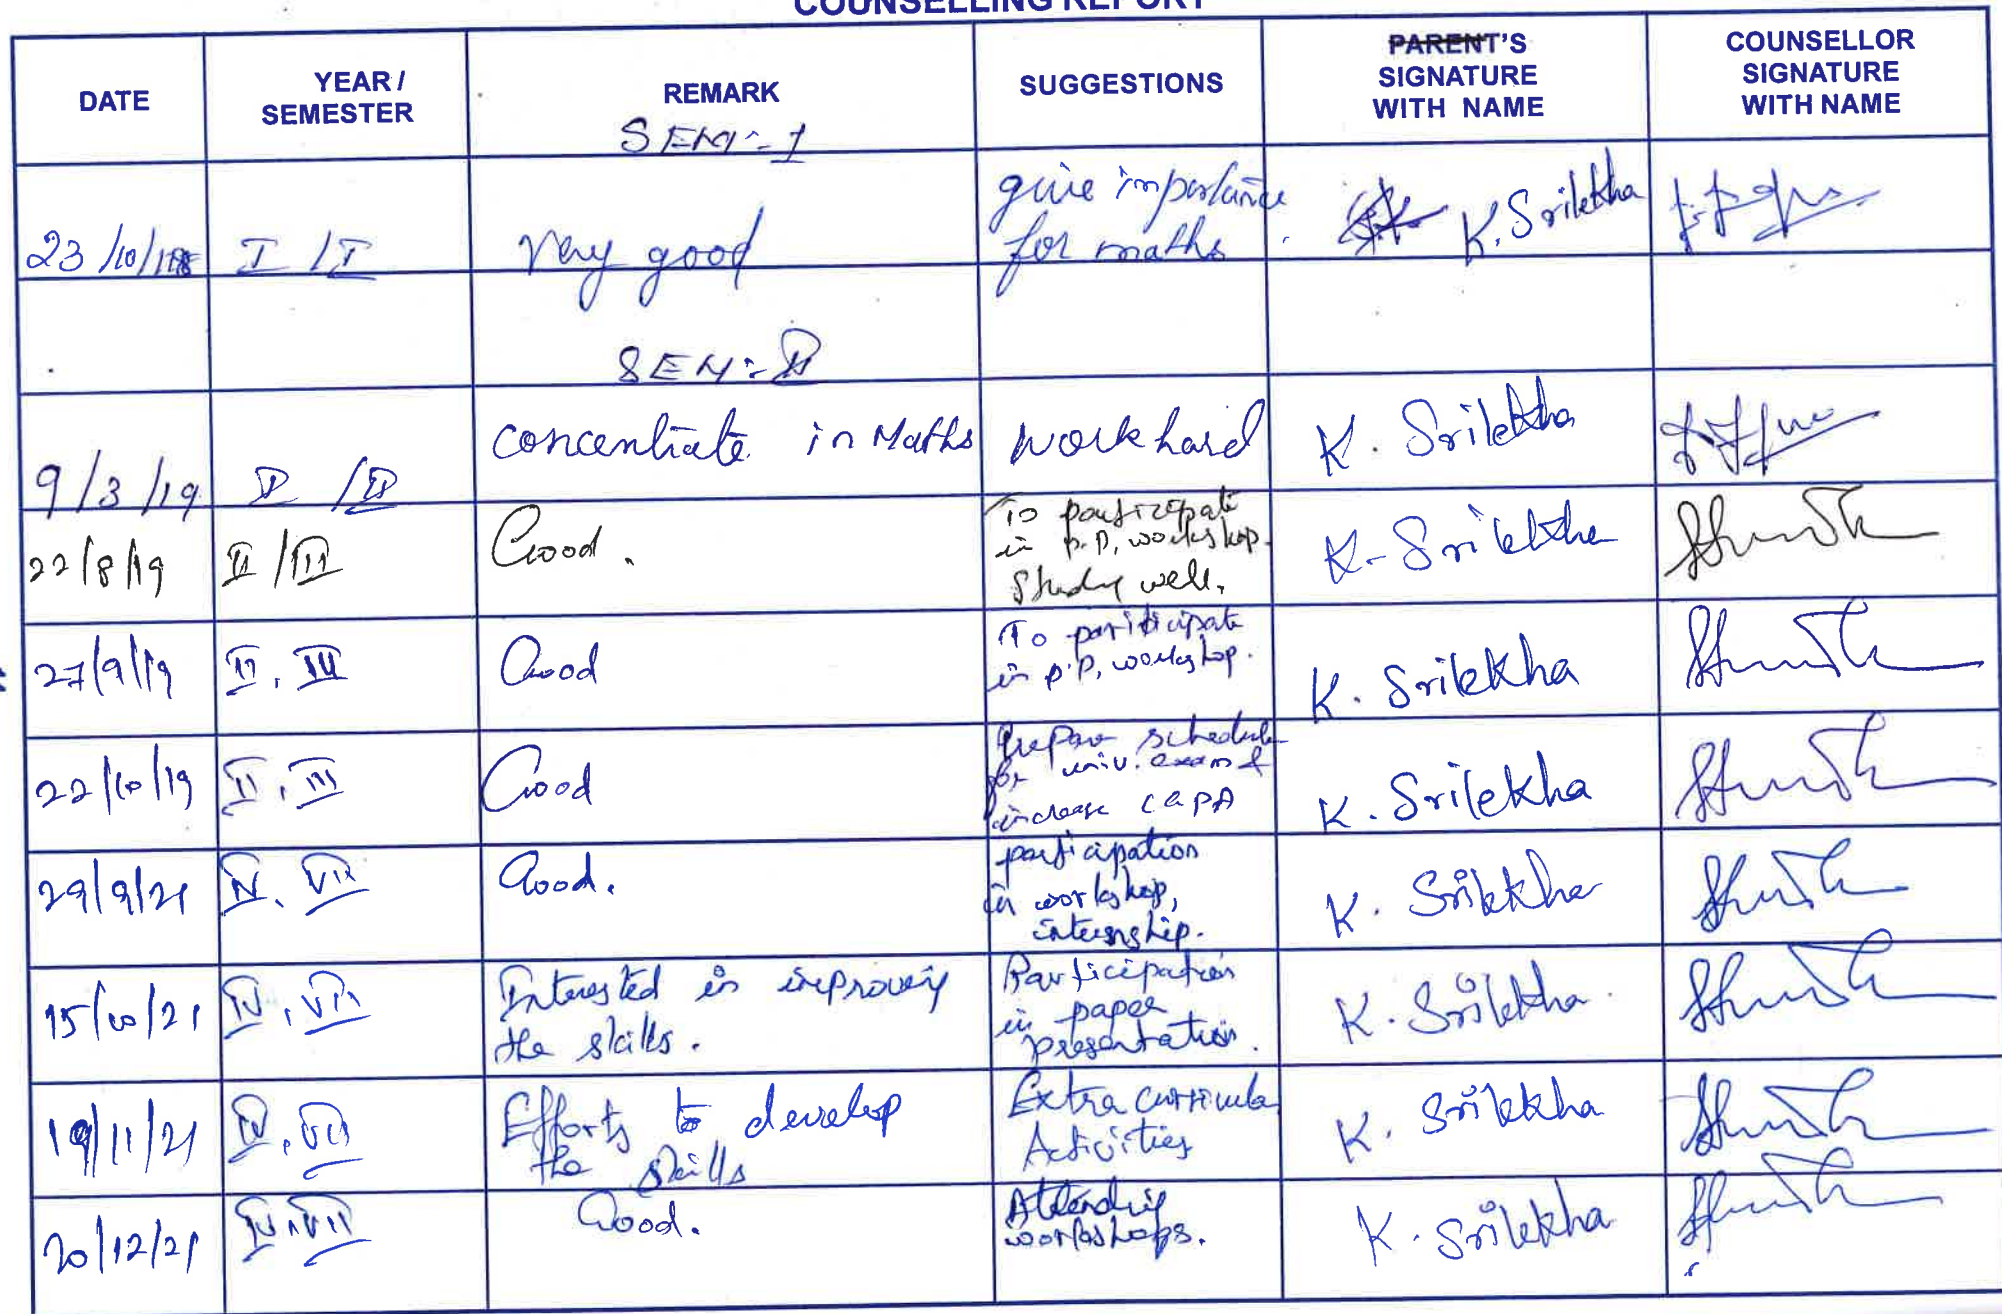 COUNSELLING REPORT
DATE
YEAR /
SEMESTER
REMARK
SUGGESTIONS
PARENT'S
SIGNATURE
WITH NAME
COUNSELLOR
SIGNATURE
WITH NAME
SEM:-I
23/10/18
I / I
Very good
give importance
for maths
K. Srilekha
SEM:-II
9/3/19
II
concentrate in Maths
Work hard
K. Srilekha
22/8/19
II / III
Good.
To participate
in P.P, workshop.
Study well.
K. Srilekha
27/9/19
II, III
Good
To participate
in P.P, workshop.
K. Srilekha
22/10/19
II, III
Good
Prepare schedule
for univ. exam &
increase CGPA
K. Srilekha
29/9/21
IV, VII
Good.
participation
in workshop,
internship.
K. Srilekha
15/10/21
IV, VII
Interested in improving
the skills.
Participation
in paper
presentation.
K. Srilekha
19/11/21
IV, VII
Efforts to develop
the skills
Extra curricula
Activities
K. Srilekha
20/12/21
IV, VII
Good.
Attending
workshops.
K. Srilekha